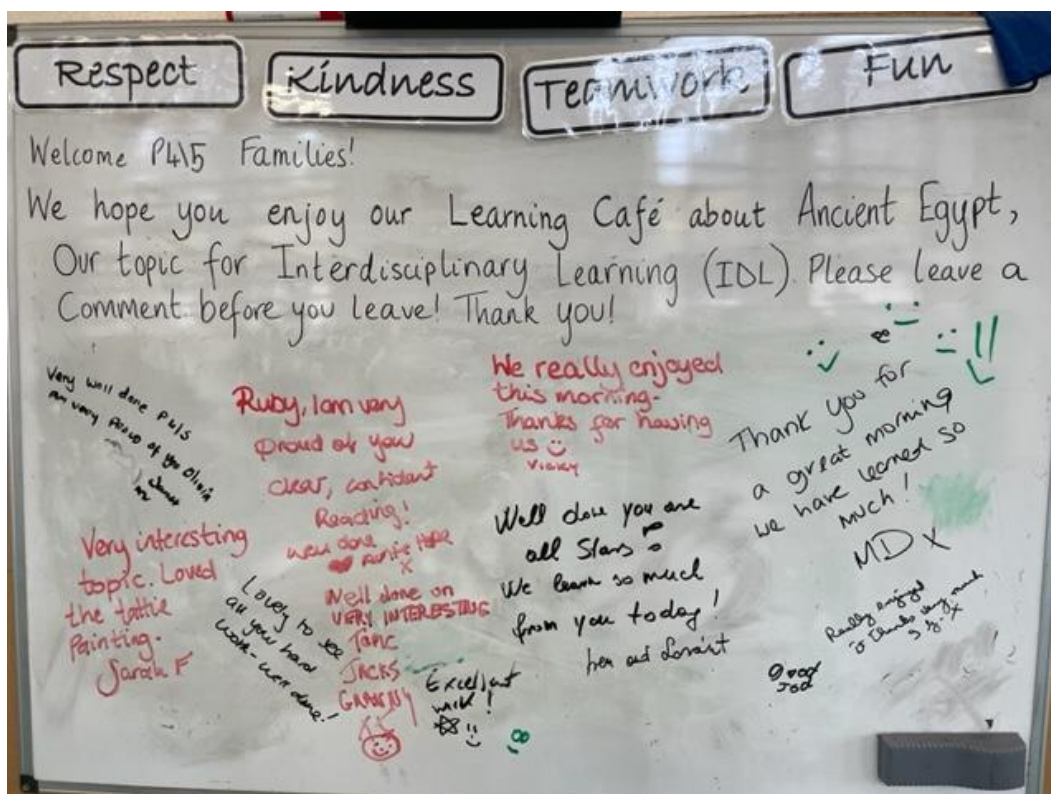 Respect
Kindness
Teamwork
Fun
Welcome P4\5 Families!
We hope you enjoy our Learning Café about Ancient Egypt,
Our topic for Interdisciplinary Learning (IDL). Please leave a
Comment before you leave! Thank you!
Very well done P4/5
am very proud of you Olivia
Ruby, I am very
proud of you
clear, confidant
Reading!
well done
Auntie Hope
x
We really enjoyed
this morning.
Thanks for having
us
Vicky
Thank you for
a great morning
we have learned so
much!
MD x
Very interesting
topic. Loved
the tattie
Painting.
Sarah F
Lovely to see
all your hard
work - well done!
Well done on
VERY INTERESTING
TOPIC
JACKS
GRANNY
Excellent
work!
Well done you are
all Stars
We learn so much
from you today!
and
Really enjoyed
Thanks very much
x
Good
Job